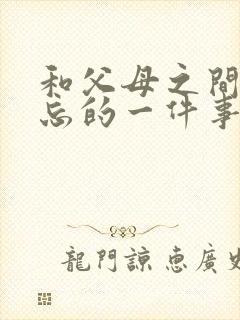 和父母之間
忘的一件事
龍門諒惠廣